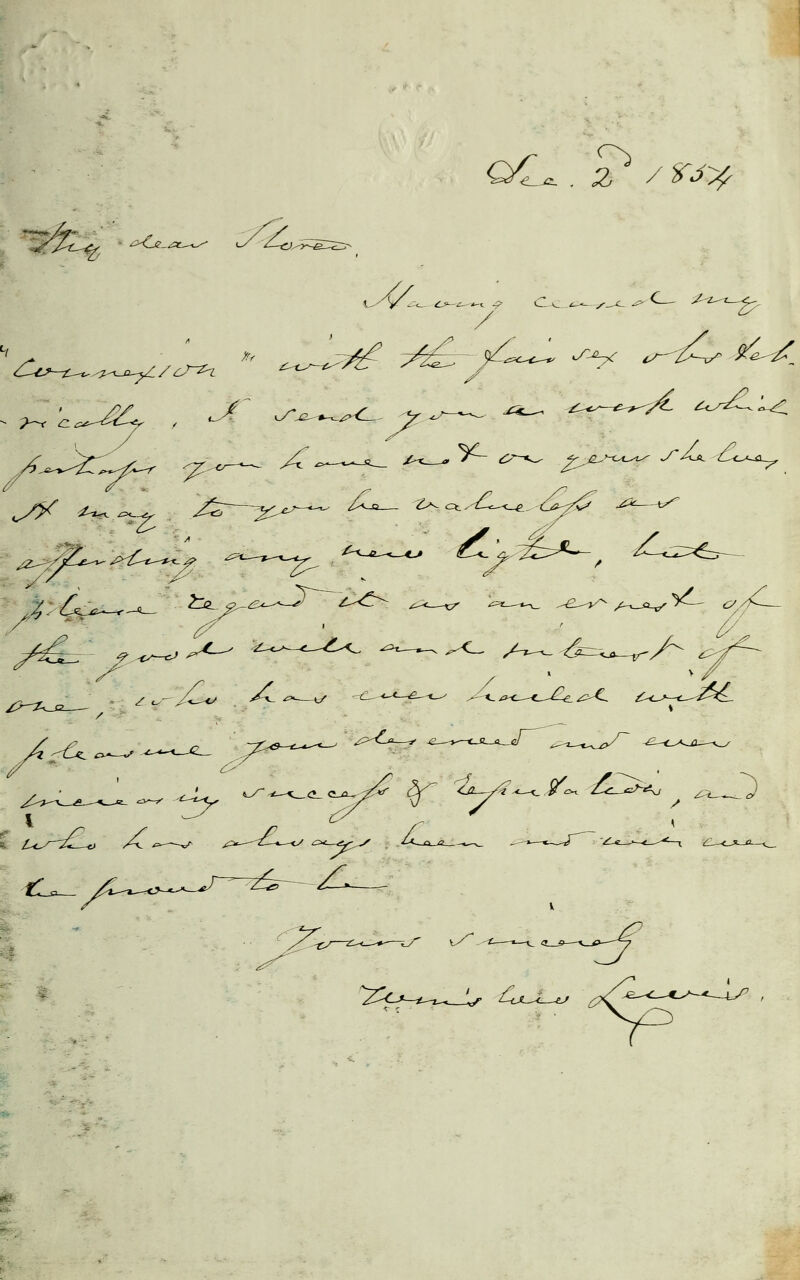 Dec. 2d 1854
My dear Storer,
Having ceased my
"Connexion" with the fair sex obstet-
-rically, I send you a work which
perhaps you have not on your shelves,
It may to you be valueless as
affording any new light, but
please regard it as an earnest of
the good will and interest of
one, who has ever hailed with
pleasure your deserved and ever
increasing success & reputation, and
who has always been and will ever
be proud to be
Yours sincerely
Winslow Lewis.